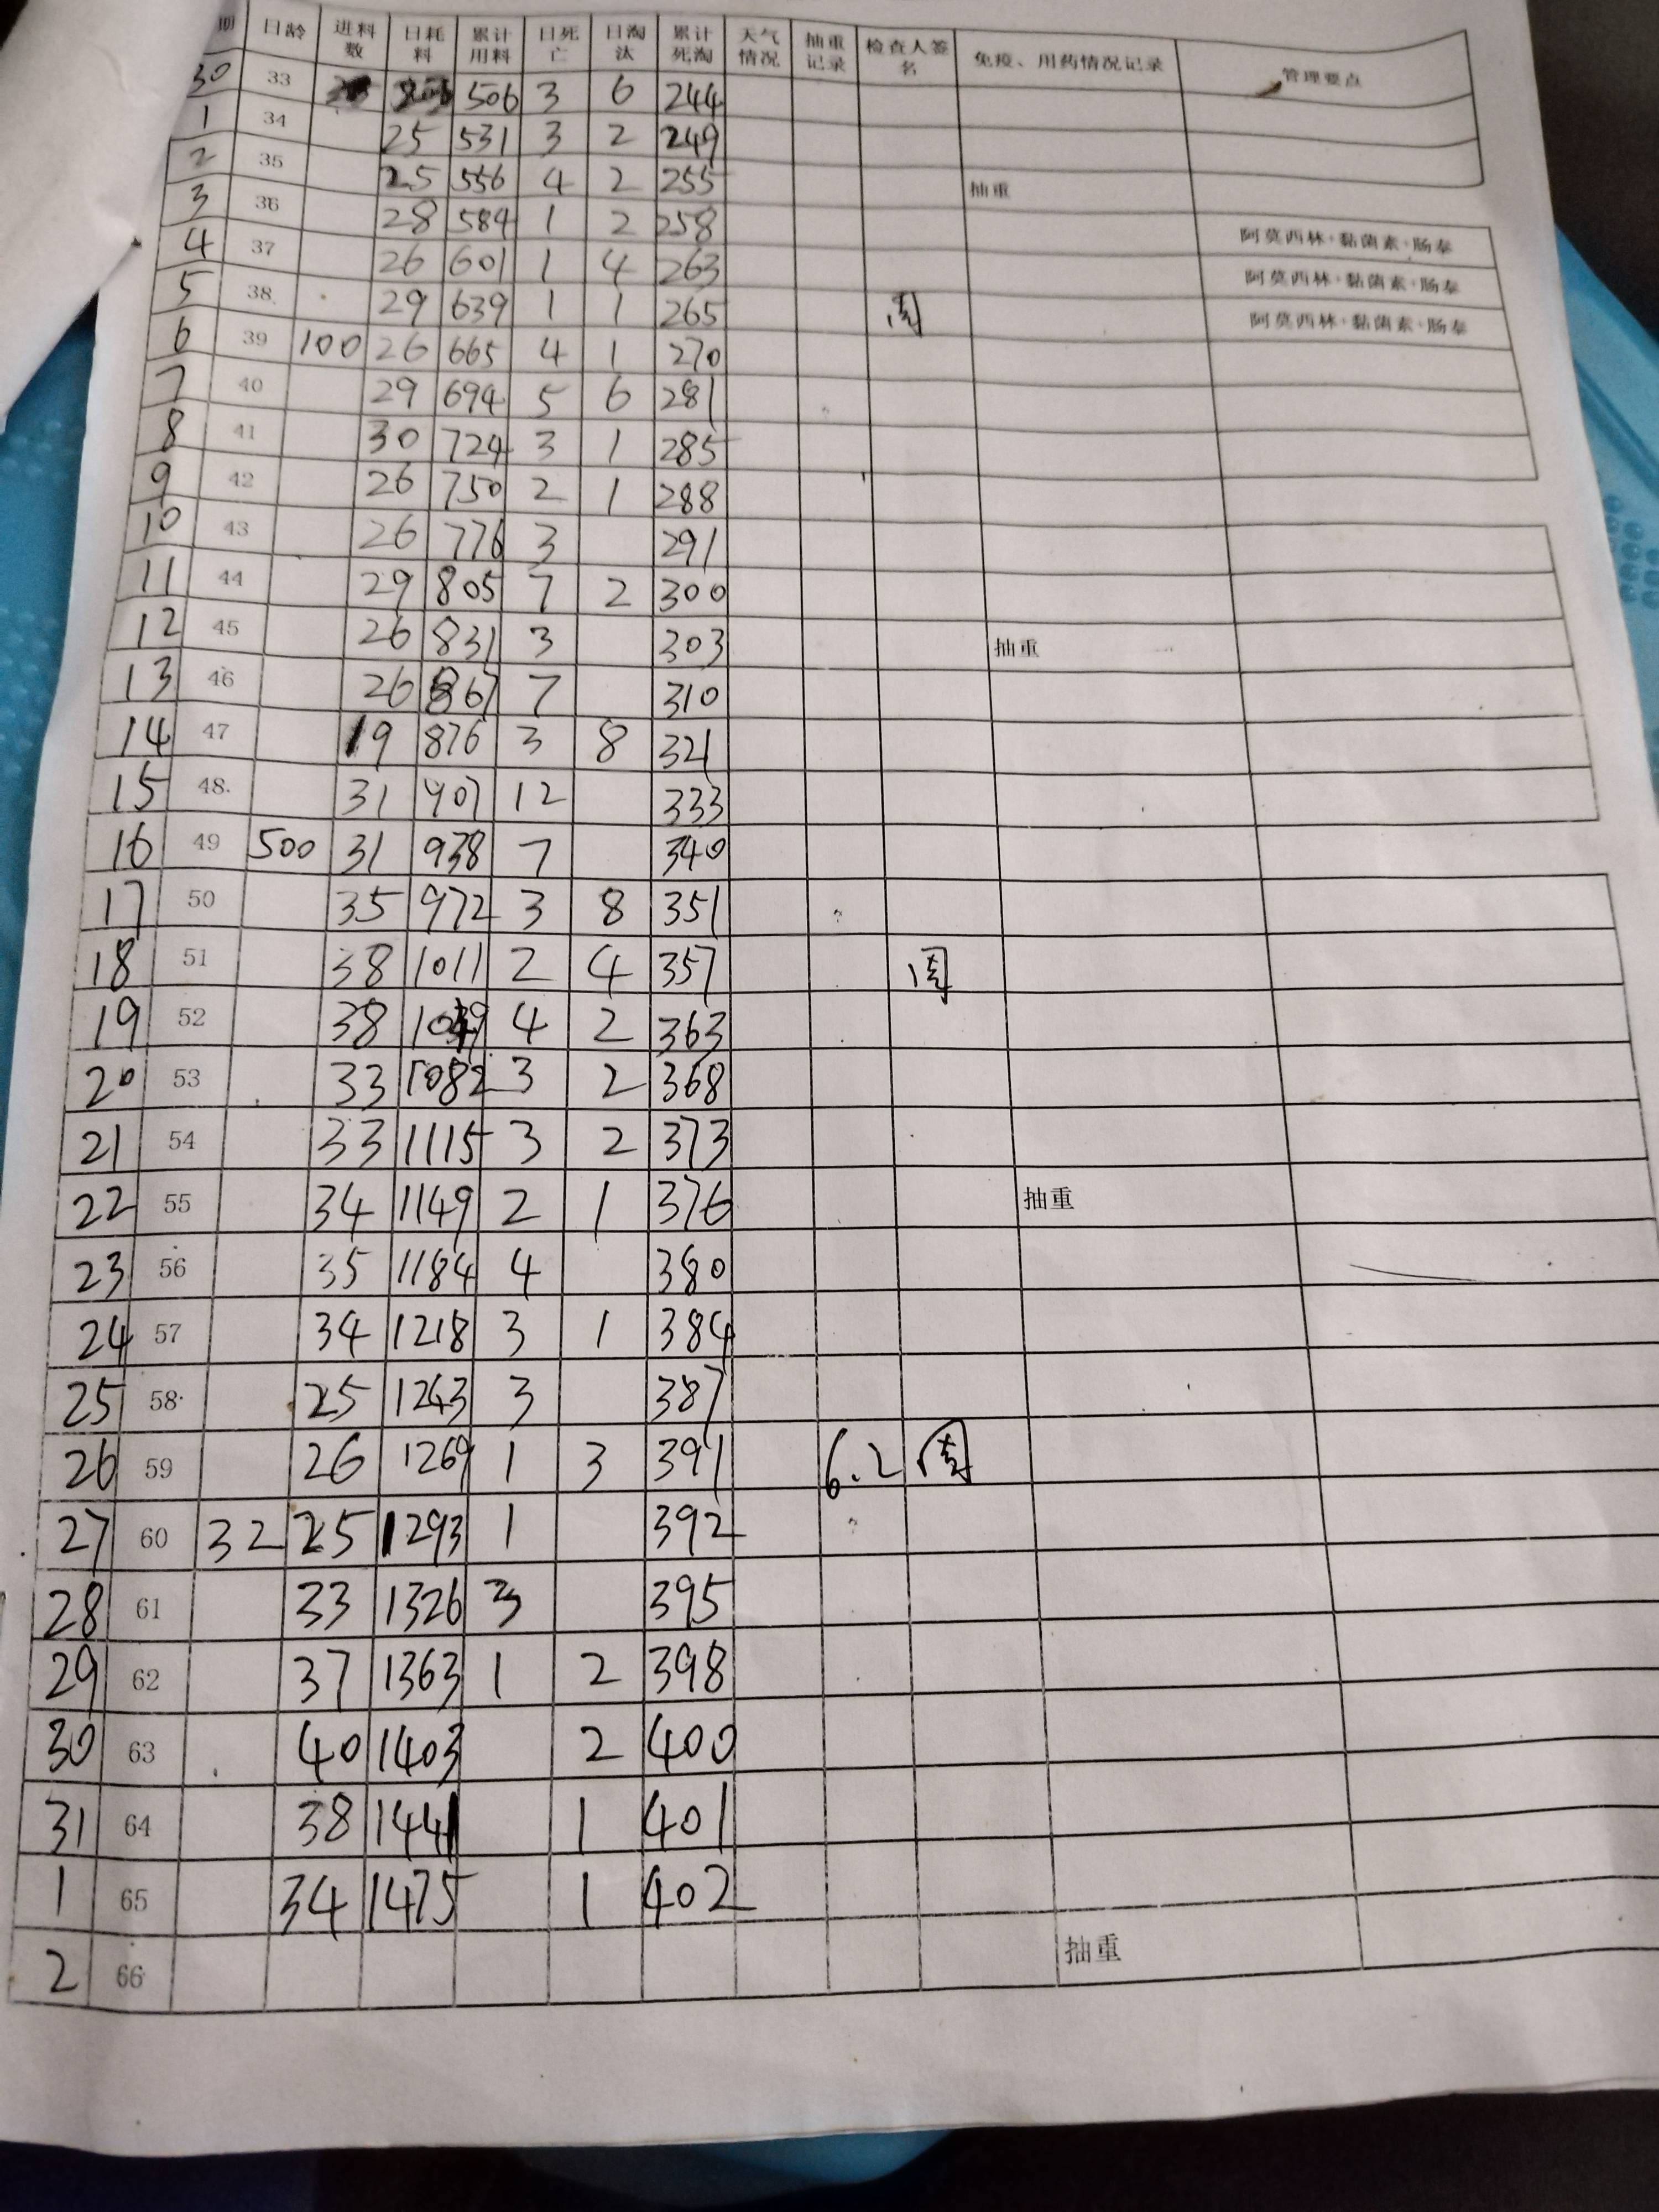 期 日龄 进料数 日耗料 累计用料 日死亡 日淘汰 累计死淘 天气情况 抽重记录 检查人签名 免疫、用药情况记录 管理要点
30 33 506 3 6 244
1 34 25 531 3 2 249
2 35 25 556 4 2 255 抽重
3 36 28 584 1 2 258 阿莫西林+黏菌素+肠泰
4 37 26 601 1 4 263 阿莫西林+黏菌素+肠泰
5 38 29 639 1 1 265 周 阿莫西林+黏菌素+肠泰
6 39 100 26 665 4 1 270
7 40 29 694 5 6 281
8 41 30 724 3 1 285
9 42 26 750 2 1 288
10 43 26 776 3 291
11 44 29 805 7 2 300
12 45 26 831 3 303 抽重
13 46 26 867 7 310
14 47 19 876 3 8 321
15 48 31 907 12 333
16 49 500 31 938 7 340
17 50 35 972 3 8 351
18 51 38 1011 2 4 357 周
19 52 38 1049 4 2 363
20 53 33 1082 3 2 368
21 54 33 1115 3 2 373
22 55 34 1149 2 1 376 抽重
23 56 35 1184 4 380
24 57 34 1218 3 1 384
25 58 25 1243 3 387
26 59 26 1269 1 3 391 6.2 周
27 60 32 25 1293 1 392
28 61 33 1326 3 395
29 62 37 1363 1 2 398
30 63 40 1403 2 400
31 64 38 1441 1 401
1 65 34 1475 1 402
2 66 抽重